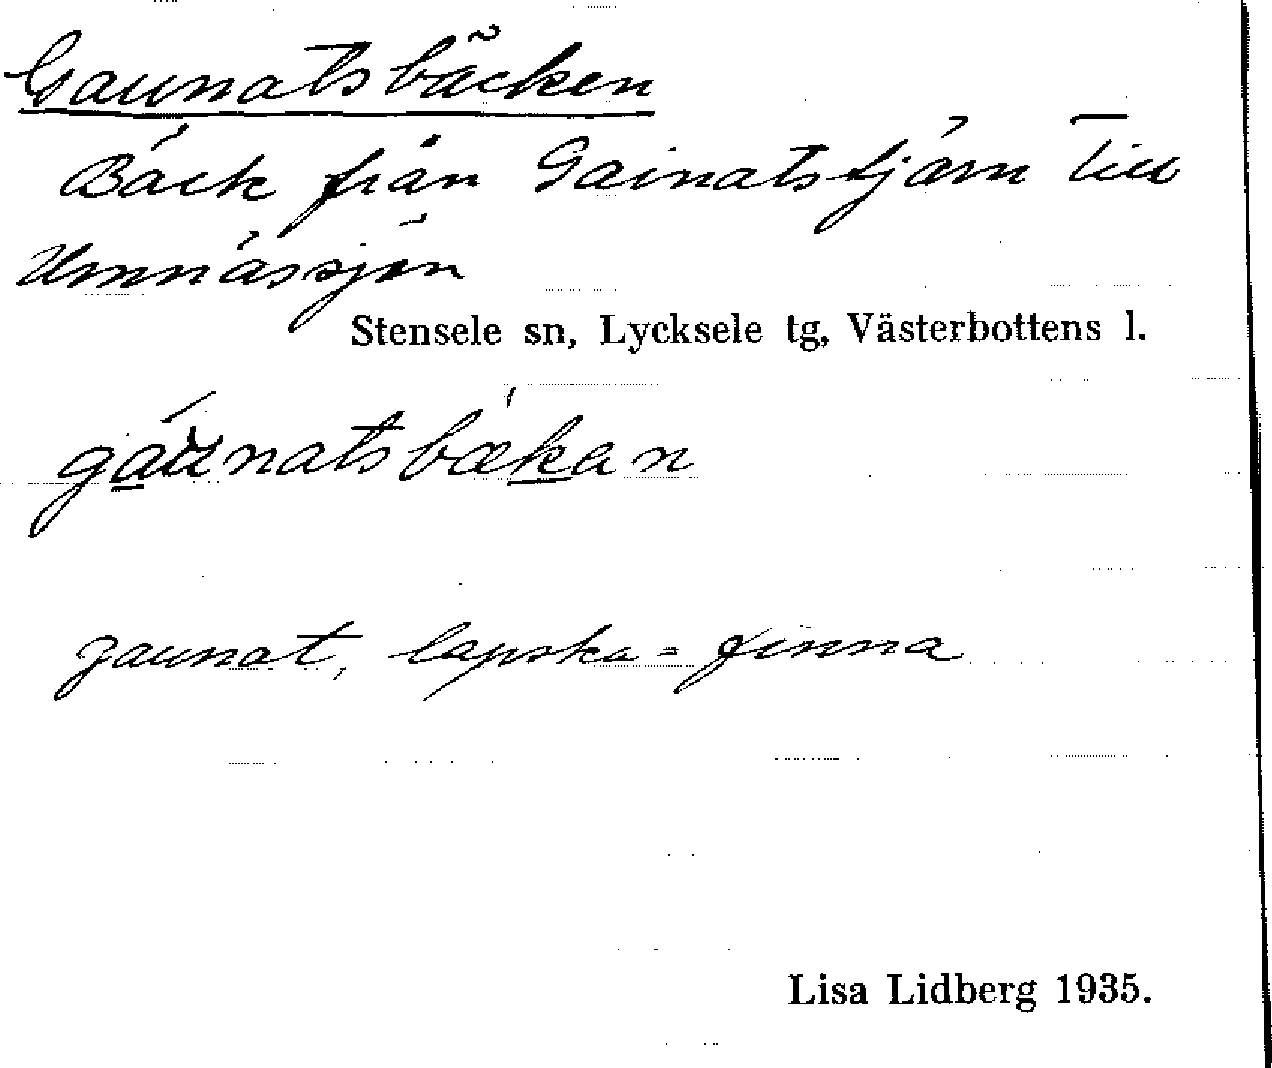 Gaunatsbäcken
Bäck från Gainatstjärn till
Umnässjön
Stensele sn, Lycksele tg, Västerbottens l.
gáunatsbækan
gaunat, lapska = finna
Lisa Lidberg 1935.